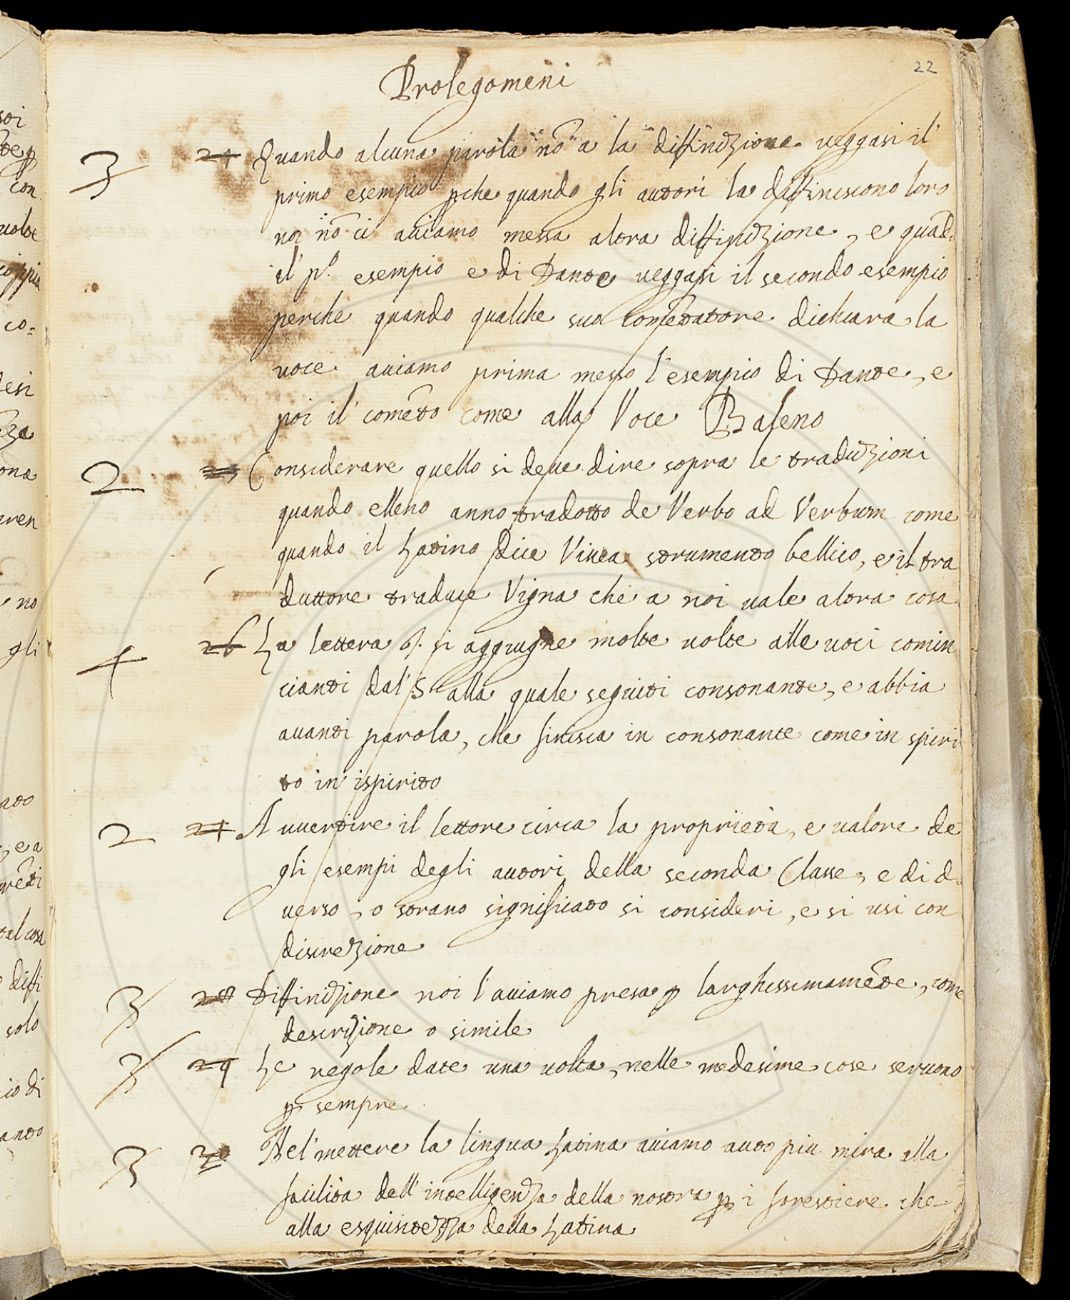 22
Prolegomeni
3 24 Quando alcuna parola nõ a la diffinizione veggasi il
primo esempio pche quando gli autori la diffiniscono loro
noi nõ ci auiamo messa altra diffinizione, e quãd.
il p.º esempio e di Dante veggasi il secondo esempio
perche quando qualche suo comẽtatore dichiara la
uoce auiamo prima messo l'esempio di Dante, e
poi il comẽto come alla Voce Baleno
2 Considerare quello si deue dire sopra le traduzioni
quando elleno anno tradotto de Verbo ad Verbum come
quando il Latino dice Vinea strumento bellico, e il tra
duttore traduce Vigna che a noi uale altra cosa
4 26 La lettera si aggiugne molte uolte alle uoci comin
cianti dal S alla quale seguiti consonante, e abbia
auanti parola, che finisca in consonante come in spiri
to in ispirito
2 27 Auuertire il lettore circa la proprietà, e ualore de
gli esempi degli autori della seconda Classe, e di d
verso, o strano significato si consideri, e si usi con
discrezione
3 28 Diffinizione noi l'auiamo presa p larghissimamẽte, come
descrizione o simile
3 29 Le regole date una uolta, nelle medesime cose seruono
p sempre
3 30 Nel mettere la lingua Latina auiamo auto piu mira alla
facilità dell'intelligenza della nostra p i forestiere che
alla esquisitezza della Latina